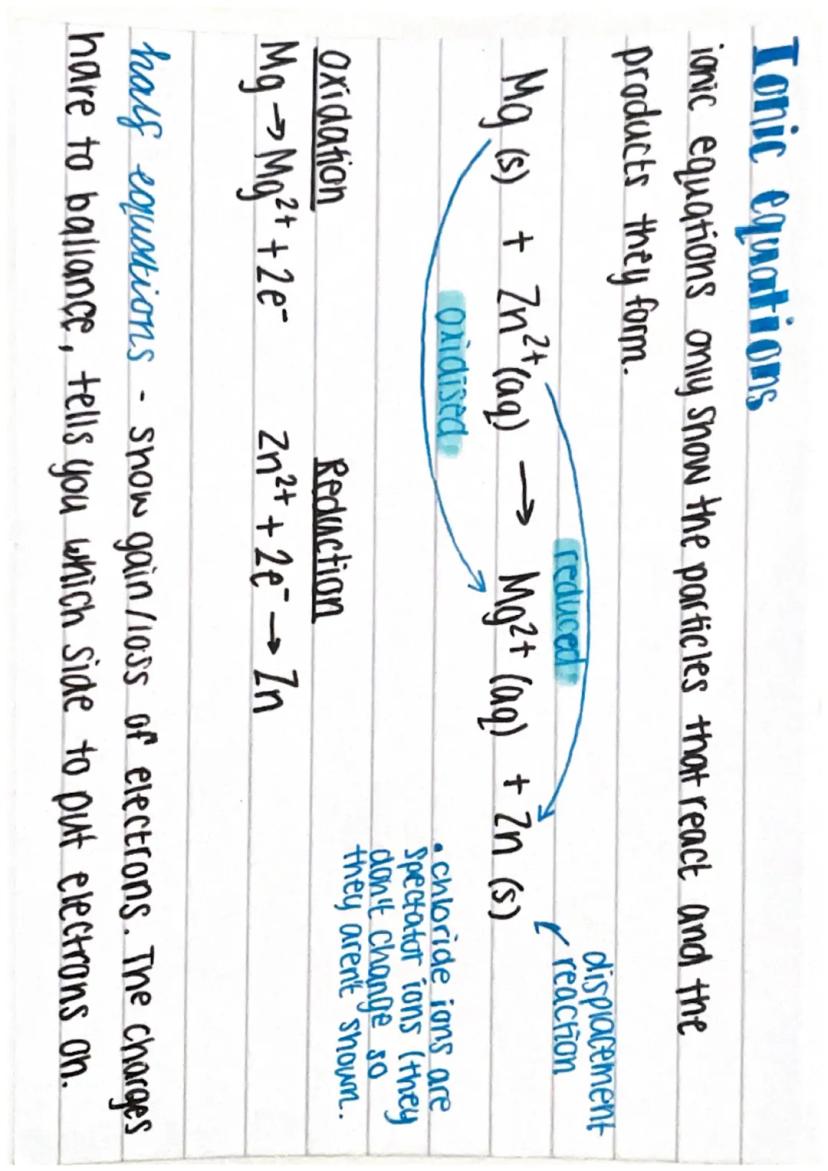 Ionic equations
ionic equations only show the particles that react and the
products they form.
displacement
reaction
reduced
Mg (s) + Zn²⁺(aq) → Mg²⁺ (aq) + Zn (s)
oxidised
• chloride ions are
spectator ions (they
don't change so
they aren't shown.
oxidation Reduction
Mg → Mg²⁺ + 2e⁻ Zn²⁺ + 2e⁻ → Zn
half equations - show gain/loss of electrons. The charges
have to ballance, tells you which side to put electrons on.